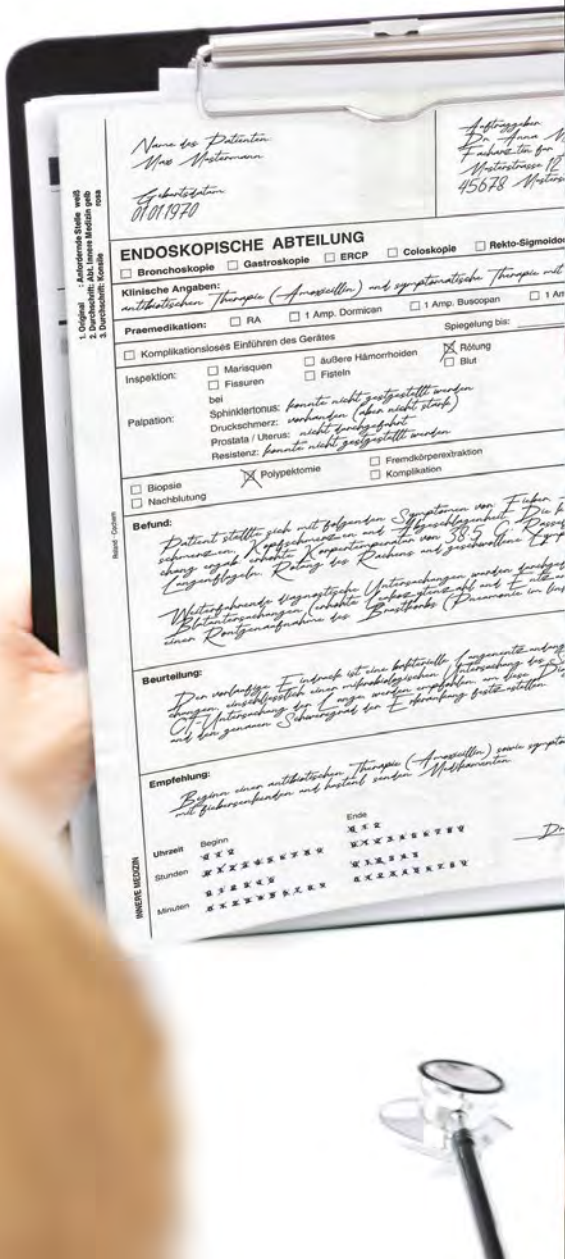 Name des Patienten
Max Mustermann
Geburtsdatum
01 01 1970
Auftraggeber
Dr. Anna M
Facharzt für
Musterstrasse 12
45678 Musters
1. Original : Anfordernde Stelle weiß
2. Durchschrift: Abt. Innere Medizin gelb
3. Durchschrift: Konsile rosa
ENDOSKOPISCHE ABTEILUNG
Bronchoskopie Gastroskopie ERCP Coloskopie Rekto-Sigmoido
Klinische Angaben:
antibiotischen Therapie (Amoxicillin) und symptomatische Therapie mit
Praemedikation: RA 1 Amp. Dormican 1 Amp. Buscopan 1 Am
Komplikationsloses Einführen des Gerätes Spiegelung bis:
Inspektion: Marisquen äußere Hämorrhoiden Rötung
Fissuren Fisteln Blut
bei
Palpation: Sphinktertonus: konnte nicht gestgestellt werden
Druckschmerz: vorhanden (aber nicht stark)
Prostata / Uterus: nicht durchgeführt
Resistenz: konnte nicht gestgestellt werden
Biopsie Polypektomie Fremdkörperextraktion
Nachblutung Komplikation
Roland · Cochem
Befund:
Patient stellte sich mit folgenden Symptomen von Fieber
schmerzen, Kopfschmerzen und Abgeschlagenheit. Die k
chung ergab erhöhte Körpertemperatur von 38.5 C. Rassel
Lungenflügeln, Rötung des Rachens und geschwollene Lymp
Weiterführende diagnostische Untersuchungen wurden durchgef
Blutuntersuchungen (erhöhte Leukozytenzahl und Entzün
einer Röntgenaufnahme des Brustkorbs (Pneumonie im link
Beurteilung:
Der vorläufige Eindruck ist eine bakterielle Lungenentzündung
chungen, einschliesslich einer mikrobiologischen Untersuchung des S
CT-Untersuchung der Lunge werden empfohlen, um diese Di
und den genauen Schweregrad der Erkrankung festzustellen
Empfehlung:
Beginn einer antibiotischen Therapie (Amoxicillin) sowie sympto
mit fiebersenkenden und hustenl senden Medikamenten.
Uhrzeit Beginn Ende
Stunden
Minuten
Dr
INNERE MEDIZIN